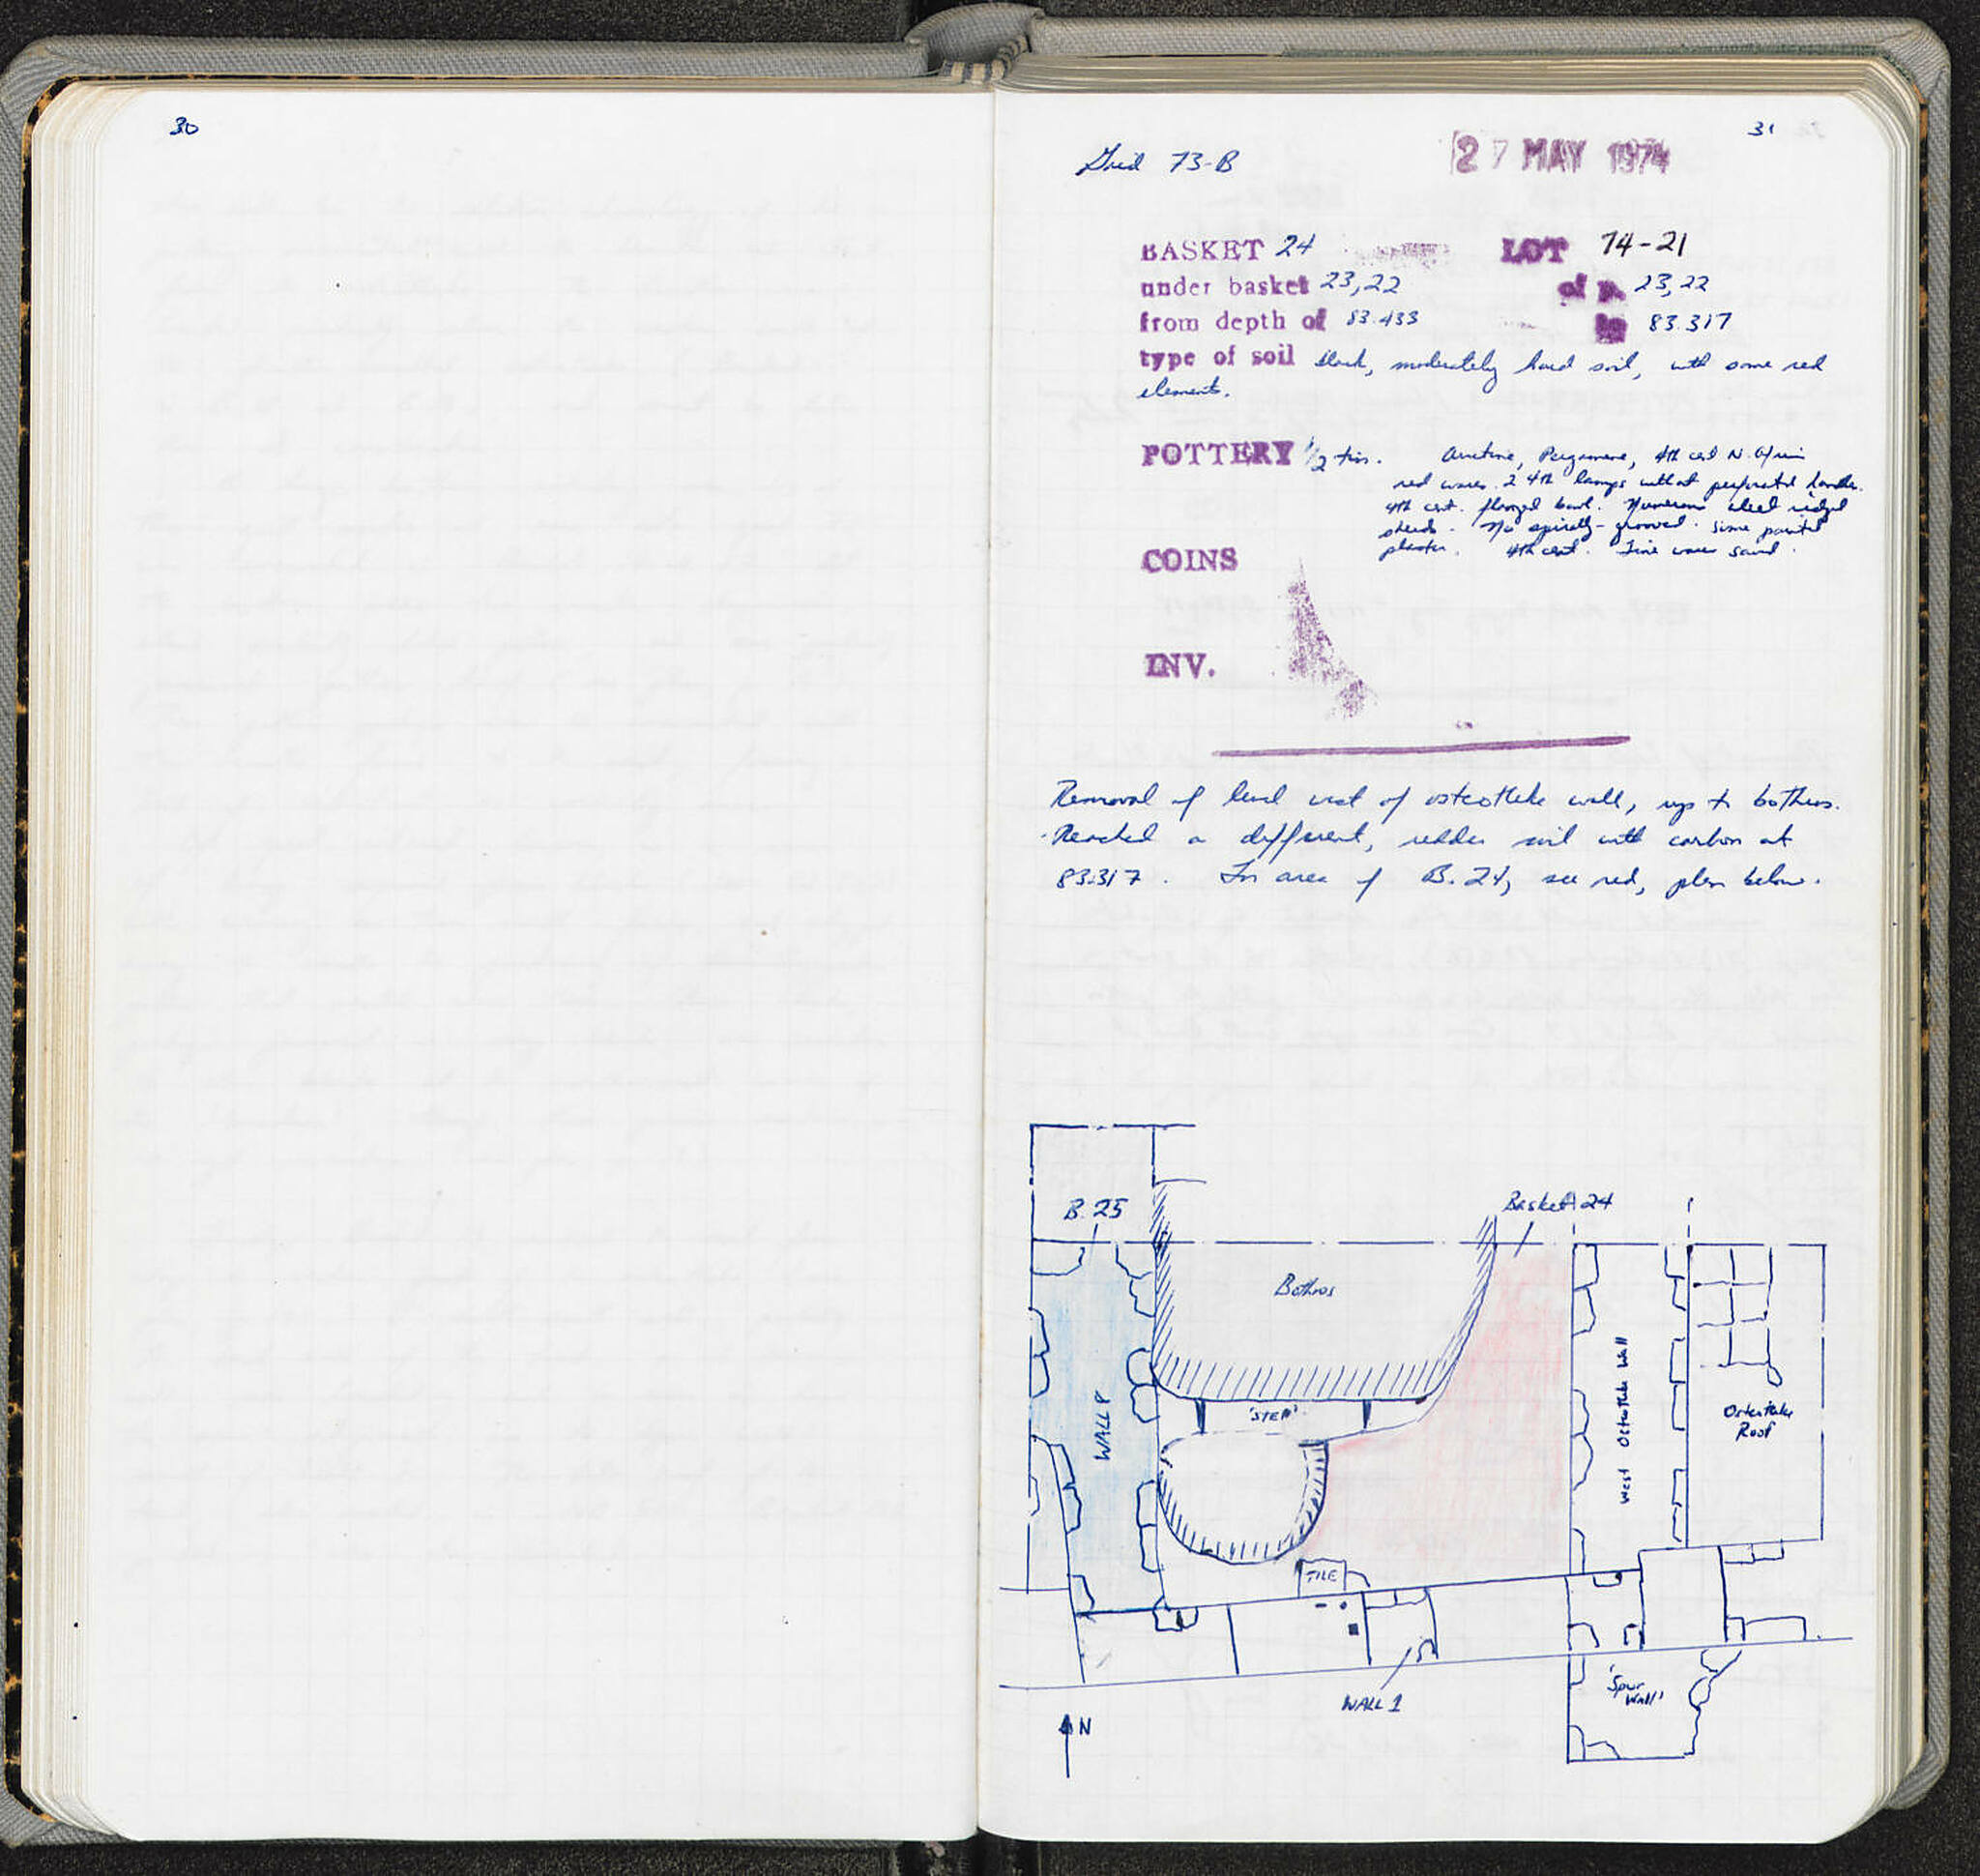 30
31
Grid 73-B
27 MAY 1974
BASKET 24 LOT 74-21
under basket 23,22 of p. 23,22
from depth of 83.433 to 83.317
type of soil black, moderately hard soil, with some red
elements.
POTTERY 1/2 tin. Arretine, Pergamene, 4th cent N. African
red wares. 2 4th lamps without perforated handle.
4th cent. flanged bowl. Numerous wheel ridged
sherds. No spirally-grooved. Some painted
plaster. 4th cent. Fine wares saved.
COINS
INV.
Removal of level west of osteotheke wall, up to bothros.
Reached a different, redder soil with carbon at
83.317. For area of B. 24, see red, plan below.
B. 25
Basket 24
Bothros
WALL P
'STEP'
West Osteotheke Wall
Osteotheke
Roof
TILE
WALL 1
'Spur
Wall'
N